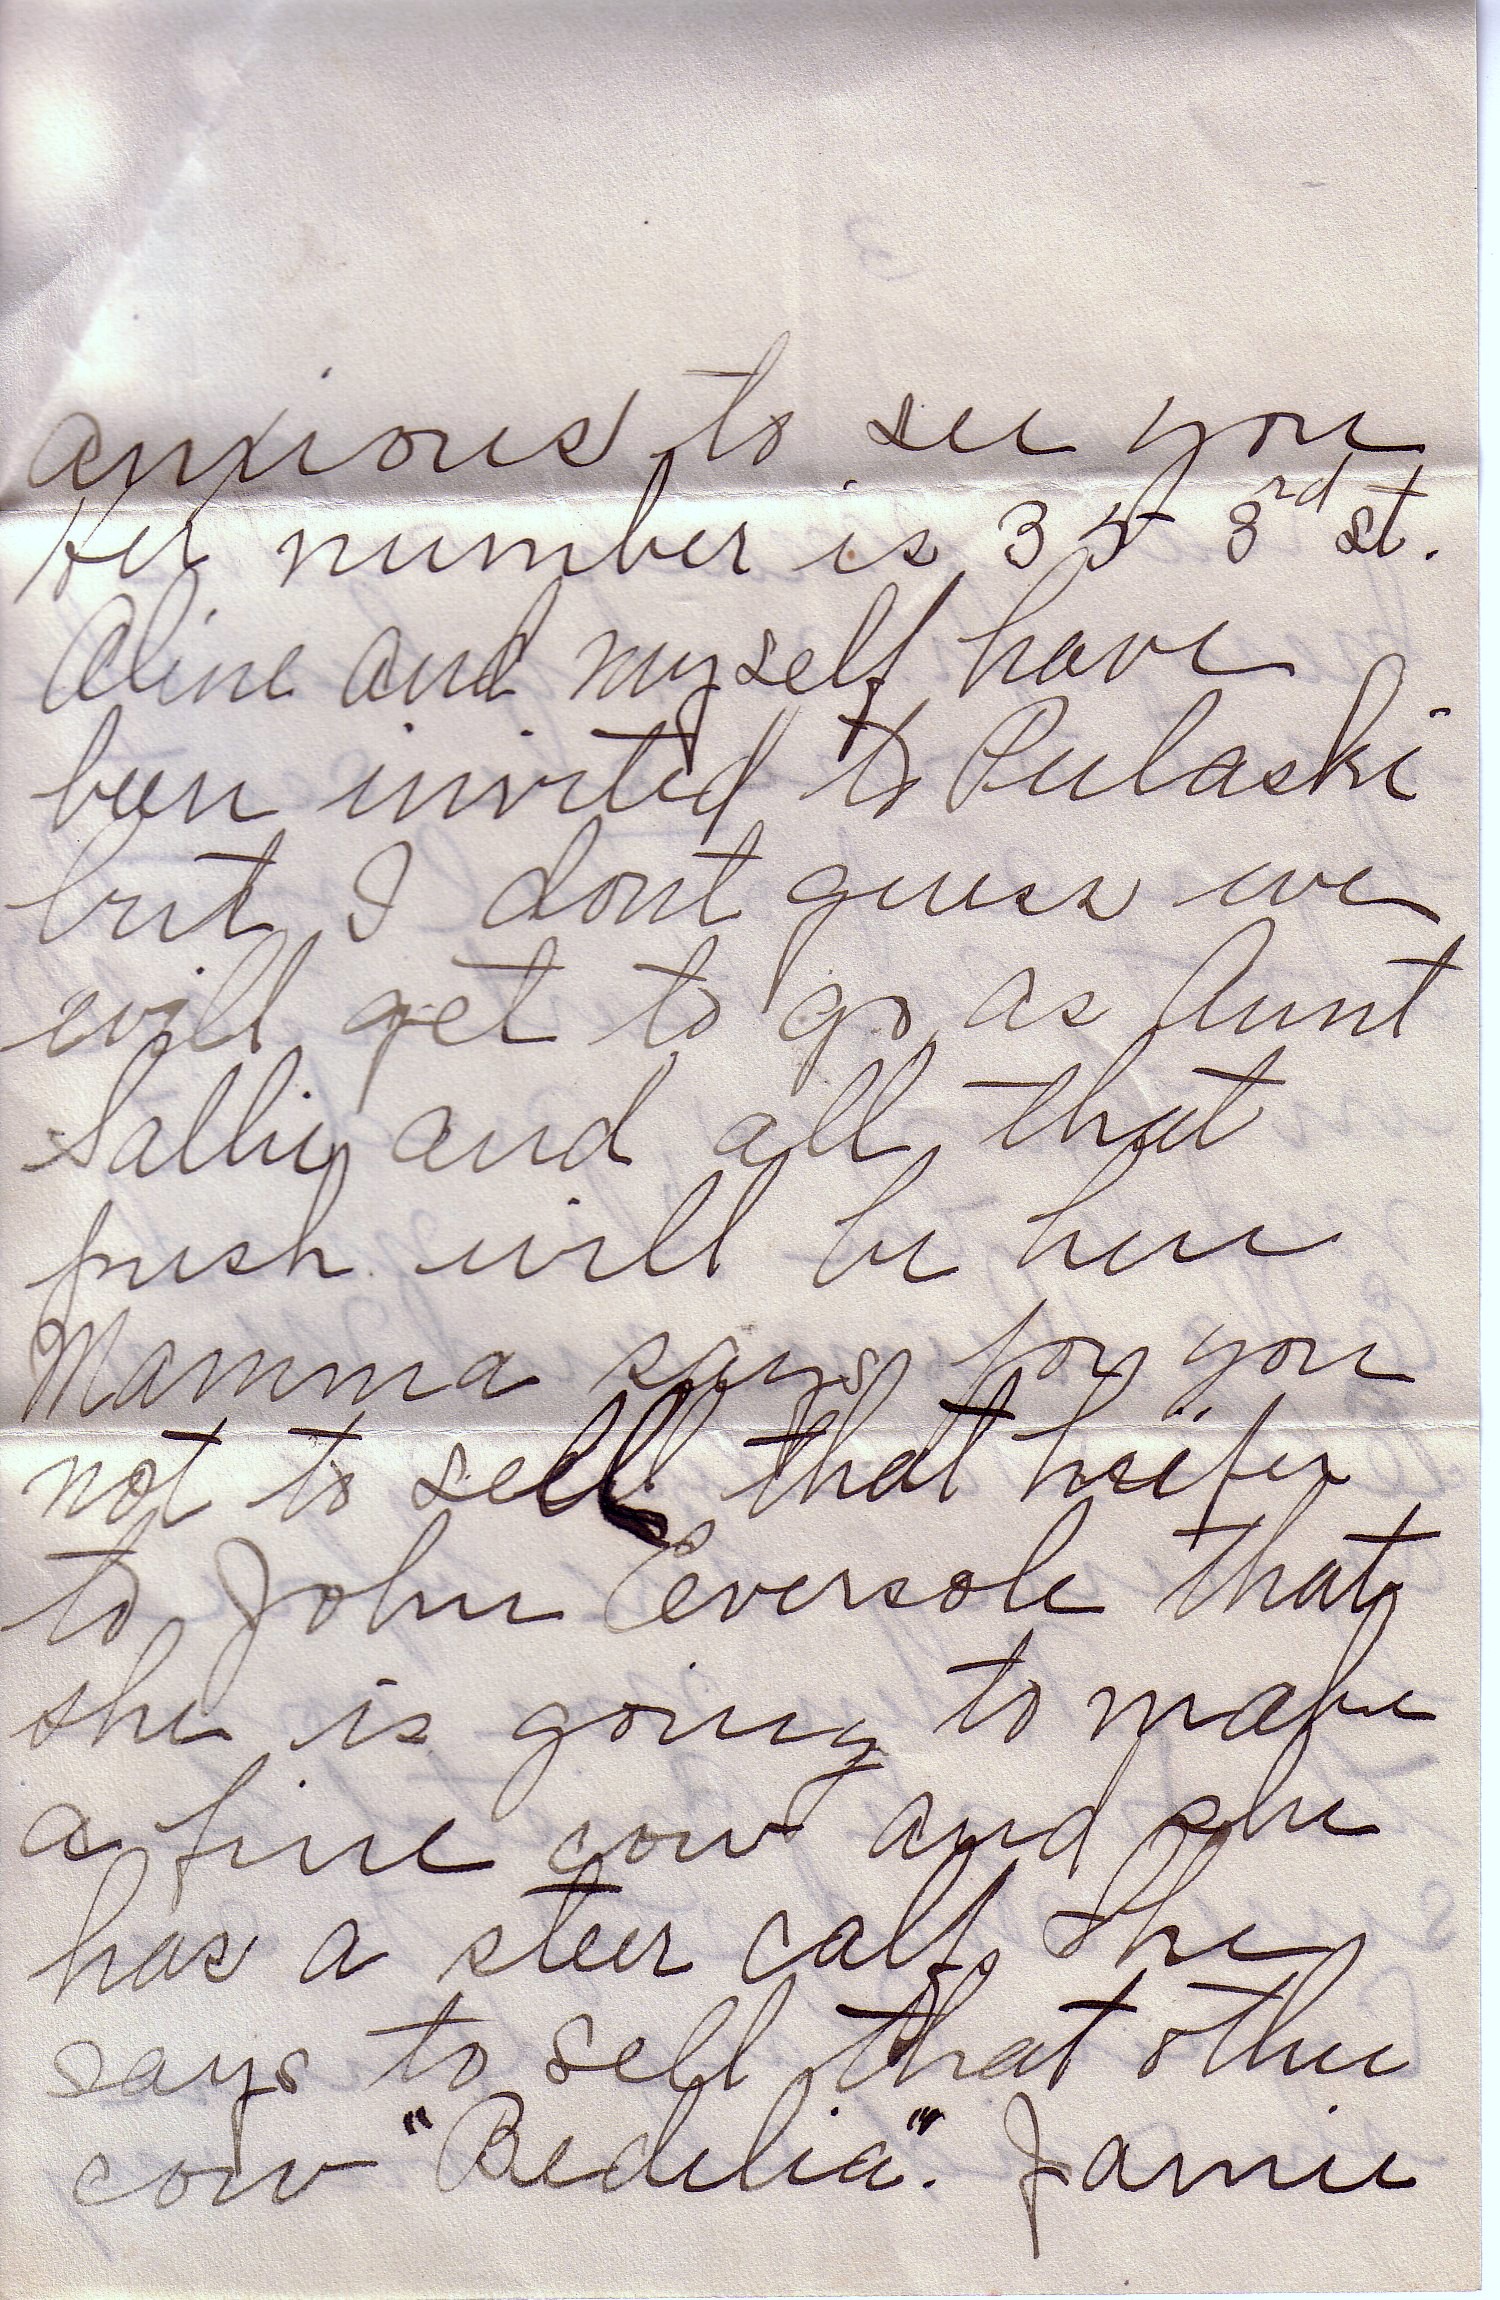 anxious to see you
Her number is 35 3rd st.
Aline and myself have
been invited to Pulaski
but I dont guess we
will get to go as Aunt
Sallie and all that
push will be here
Mamma says for you
not to sell that heifer
to John Eversole that
she is going to make
a fine cow and she
has a steer calf. She
says to sell that other
cow "Bedelia". Jamie